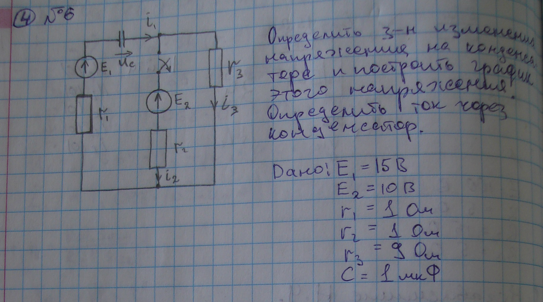 ④ №6
i₁
Uc
E₁
r₁
E₂
r₂
i₂
r₃
i₃
Определить з-н изменения
напряжения на конденса
тора и построить график
этого напряжения.
Определить ток через
конденсатор.
Дано: E₁ = 15 В
E₂ = 10 В
r₁ = 1 Ом
r₂ = 1 Ом
r₃ = 9 Ом
C = 1 мкФ